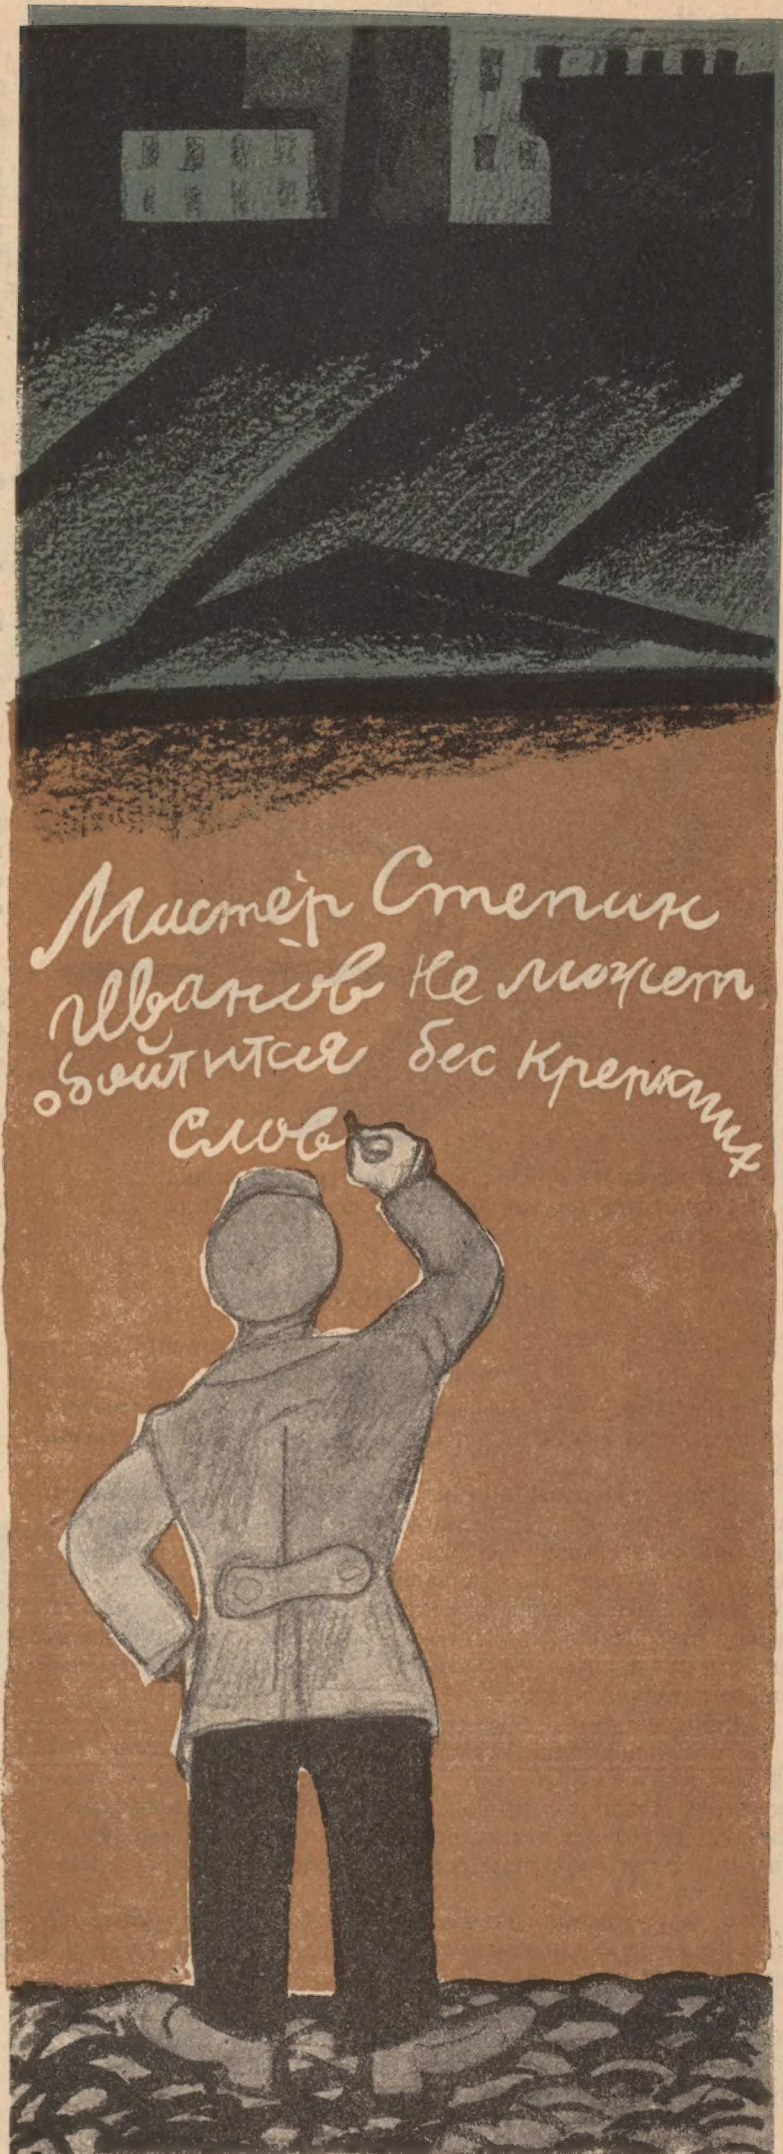 Мастер Степан
Иванов не может
обойтится бес крепких
слов